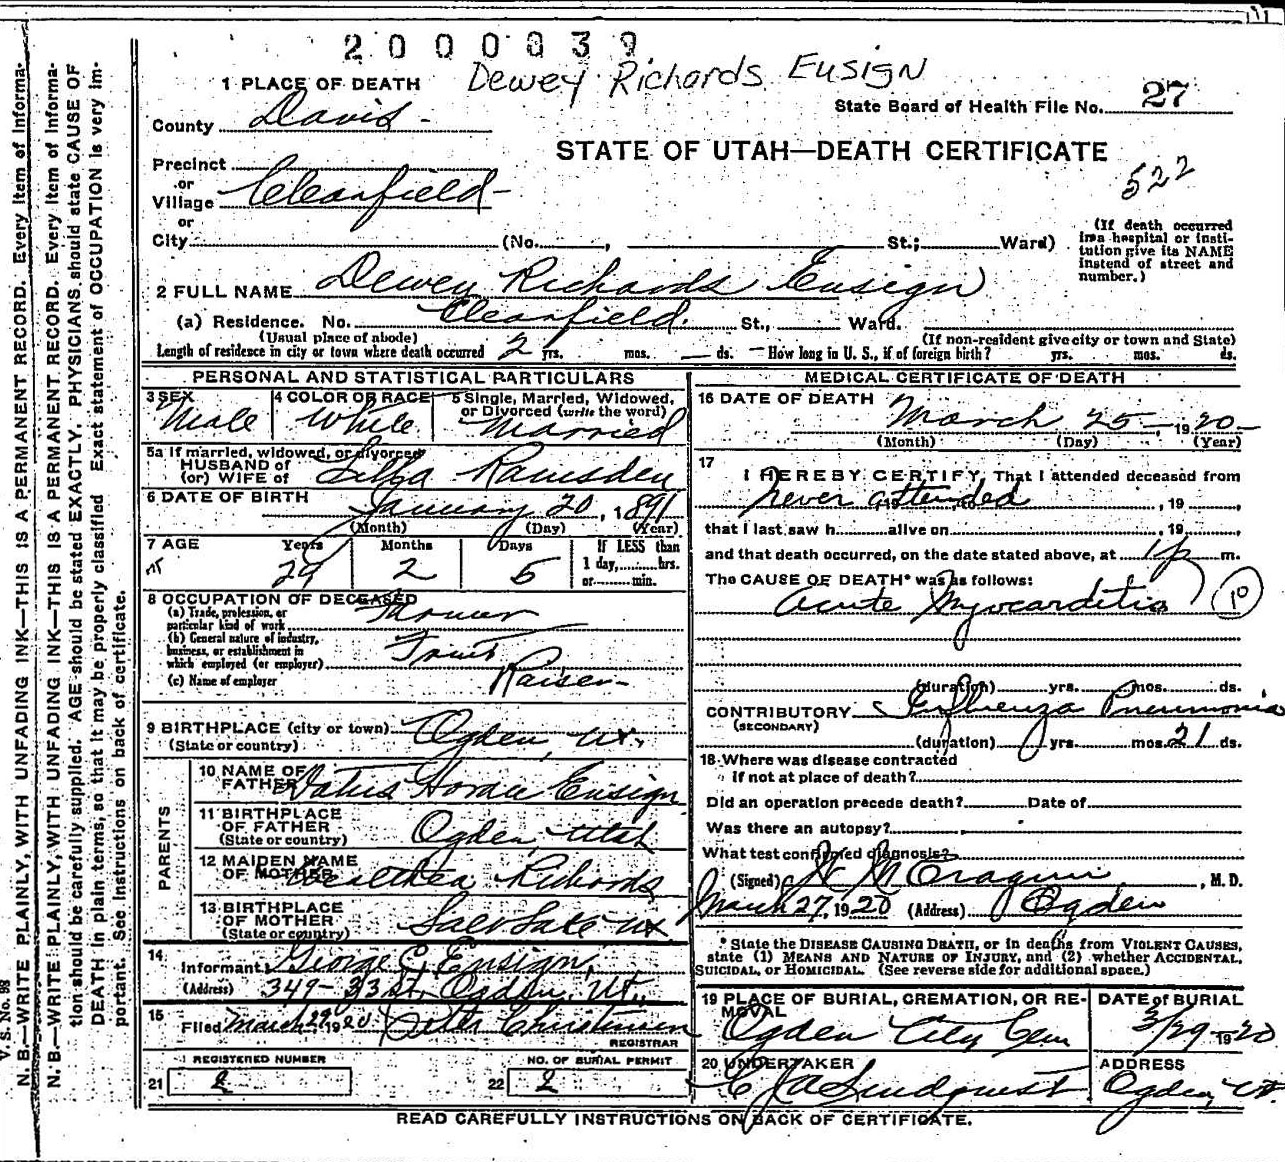 2000039
Dewey Richards Ensign
1 PLACE OF DEATH
State Board of Health File No. 27
County Davis
STATE OF UTAH—DEATH CERTIFICATE
522
Precinct
or
Village Clearfield
or
City (No. , St.; Ward)
(If death occurred in a hospital or insti-
tution give its NAME
instead of street and
number.)
2 FULL NAME Dewey Richards Ensign
(a) Residence. No. Clearfield. St., Ward.
(Usual place of abode) (If non-resident give city or town and State)
Length of residence in city or town where death occurred 2 yrs. mos. ds. How long in U. S., if of foreign birth? yrs. mos. ds.
PERSONAL AND STATISTICAL PARTICULARS
3 SEX 4 COLOR OR RACE 5 Single, Married, Widowed,
or Divorced (write the word)
Male White Married
5a If married, widowed, or divorced
HUSBAND of
(or) WIFE of Ramsden
6 DATE OF BIRTH
January 20, 1891
(Month) (Day) (Year)
7 AGE Years Months Days If LESS than
1 day, hrs.
or min.
29 2 5
8 OCCUPATION OF DECEASED
(a) Trade, profession, or
particular kind of work
(b) General nature of industry,
business, or establishment in
which employed (or employer) Fruit
(c) Name of employer Raiser
9 BIRTHPLACE (city or town) Ogden, Ut.
(State or country)
PARENTS
10 NAME OF
FATHER Horace Ensign
11 BIRTHPLACE
OF FATHER
(State or country) Ogden, Utah
12 MAIDEN NAME
OF MOTHER Richards
13 BIRTHPLACE
OF MOTHER
(State or country) Salt Lake Ut
14
Informant George E Ensign,
(Address) 349-33 st, Ogden, Ut.,
15
Filed March 29 1920 Christensen
REGISTRAR
REGISTERED NUMBER NO. OF BURIAL PERMIT
21 2 22 2
MEDICAL CERTIFICATE OF DEATH
16 DATE OF DEATH
March 25, 1920
(Month) (Day) (Year)
17
I HEREBY CERTIFY, That I attended deceased from
never attended , 19 ,
that I last saw h alive on , 19 ,
and that death occurred, on the date stated above, at 1 p m.
The CAUSE OF DEATH* was as follows:
Acute Myocarditis 10
(duration) yrs. mos. ds.
CONTRIBUTORY Influenza Pneumonia
(SECONDARY)
(duration) yrs. mos. 21 ds.
18 Where was disease contracted
if not at place of death?
Did an operation precede death? Date of
Was there an autopsy?
What test confirmed diagnosis?
(Signed) , M. D.
March 27, 1920 (Address) Ogden
* State the DISEASE CAUSING DEATH, or in deaths from VIOLENT CAUSES,
state (1) MEANS AND NATURE OF INJURY, and (2) whether ACCIDENTAL,
SUICIDAL, or HOMICIDAL. (See reverse side for additional space.)
19 PLACE OF BURIAL, CREMATION, OR RE-
MOVAL
DATE of BURIAL
Ogden City Cem 3/29 1920
20 UNDERTAKER ADDRESS
Lindquist Ogden, Ut.
READ CAREFULLY INSTRUCTIONS ON BACK OF CERTIFICATE.
V. S. No. 98
N. B.—WRITE PLAINLY, WITH UNFADING INK—THIS IS A PERMANENT RECORD. Every item of informa-
N. B.—WRITE PLAINLY, WITH UNFADING INK—THIS IS A PERMANENT RECORD. Every item of informa-
tion should be carefully supplied. AGE should be stated EXACTLY. PHYSICIANS should state CAUSE OF
DEATH in plain terms, so that it may be properly classified. Exact statement of OCCUPATION is very im-
portant. See instructions on back of certificate.